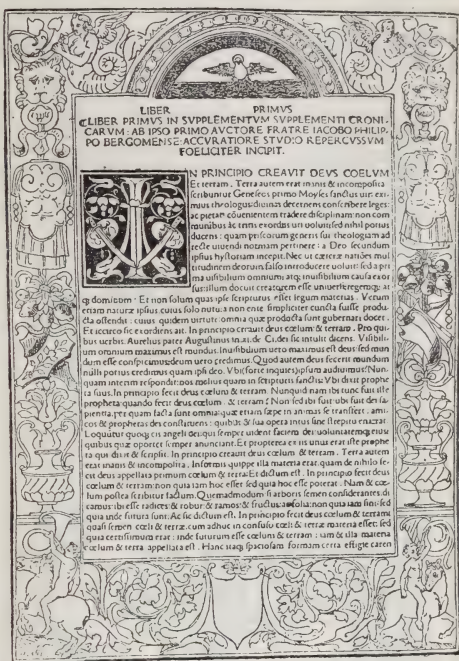 LIBER PRIMVS
LIBER PRIMVS IN SVPPLEMENTVM SVPPLEMENTI CRONI-
CARVM: AB IPSO PRIMO AVCTORE FRATRE IACOBO PHILIP-
PO BERGOMENSE: ACCVRATIORE STVDIO REPERCVSSVM
FOELICITER INCIPIT.
IN PRINCIPIO CREAVIT DEVS COELVM
Et terram. Terra autem erat inanis & incomposita
scribunt Geneseos primo Moyses sanctus uir: exi-
mius theologus: diuinas decernens conscribere leges:
ac pietati cōuenientem tradere disciplinam: non com
munibus ac tritis exordiis uti uoluit: sed nihil potius
ducens: quam priscorum generis sui theologiam ad
recte uiuendi normam pertinere: a Deo secundum
ipsius hystoriam incepit. Nec ut cæteræ natiões mul
titudinem deorum falso introducere uoluit: sed a pri
ma uisibilium omnium: atq; inuisibilium causa exor
sus: illum docuit creatorem esse uniuersi: regemq; at
q; dominum. Et non solum quas ipse scripturus esset legum materias. Verum
etiam naturæ ipsius: cuius solo nutu: non ente simpliciter cuncta fuisse produ
cta ostendit: cuius quidem uirtute: omnia quæ producta sunt gubernari docet.
Et iccirco sic exordiens ait. In principio creauit deus cœlum & terram. Pro qui
bus uerbis. Aurelius pater Augustinus in.xi.de Ci.dei sic intulit dicens. Visibili-
um omnium maximus est mundus. Inuisibilium uero maximus est deus: sed mun
dum esse conspicimus: deum uero credimus. Quod autem deus fecerit mundum
nulli potius credimus quam ipsi deo. Vbi (forte inquies) ipsum audiuimus? Nun
quam interim respondet: nos melius quam in scripturis sanctis: Vbi dixit prophe
ta suus. In principio fecit deus cœlum & terram. Nunquid nam ibi tunc fuit iste
propheta: quando fecit deus cœlum: & terram? Non sed ibi fuit: ubi fuit dei sa-
pientia: per quam facta sunt omnia: quæ etiam sæpe in animas se transfert: ami-
cos & prophetas dei constituens: quibus & sua opera intus sine strepitu enarrat.
Loquitur quoq; eis angeli dei: qui semper uident faciem dei: uoluntatemq; eius
quibus quæ oportet semper anunciant. Et propterea ex iis unus erat iste prophe
ta qui dixit & scripsit. In principio creauit deus cœlum & terram. Terra autem
erat inanis & incomposita. Informis quippe illa materia erat: quam de nihilo fe-
cit deus appellata primum cœlum & terra: Et dictum est. In principio fecit deus
cœlum & terram: non quia iam hoc esset sed quia hoc esse poterat. Nam & cœ-
lum postea scribitur factum. Quemadmodum si arboris semen considerantes: di
camus ibi esse radices & robur & ramos & fructus ac folia: non quia iam sint: sed
quia inde futura sunt. Sic dictum est. In principio fecit deus cœlum & terram:
quasi semen cœli & terræ: cum adhuc in confuso cœli & terræ materia esset: sed
quia certissimum erat: inde futurum esse cœlum & terram: iam & illa materia
cœlum & terra appellata est. Hanc itaq; spaciosam formam certa effigie caren